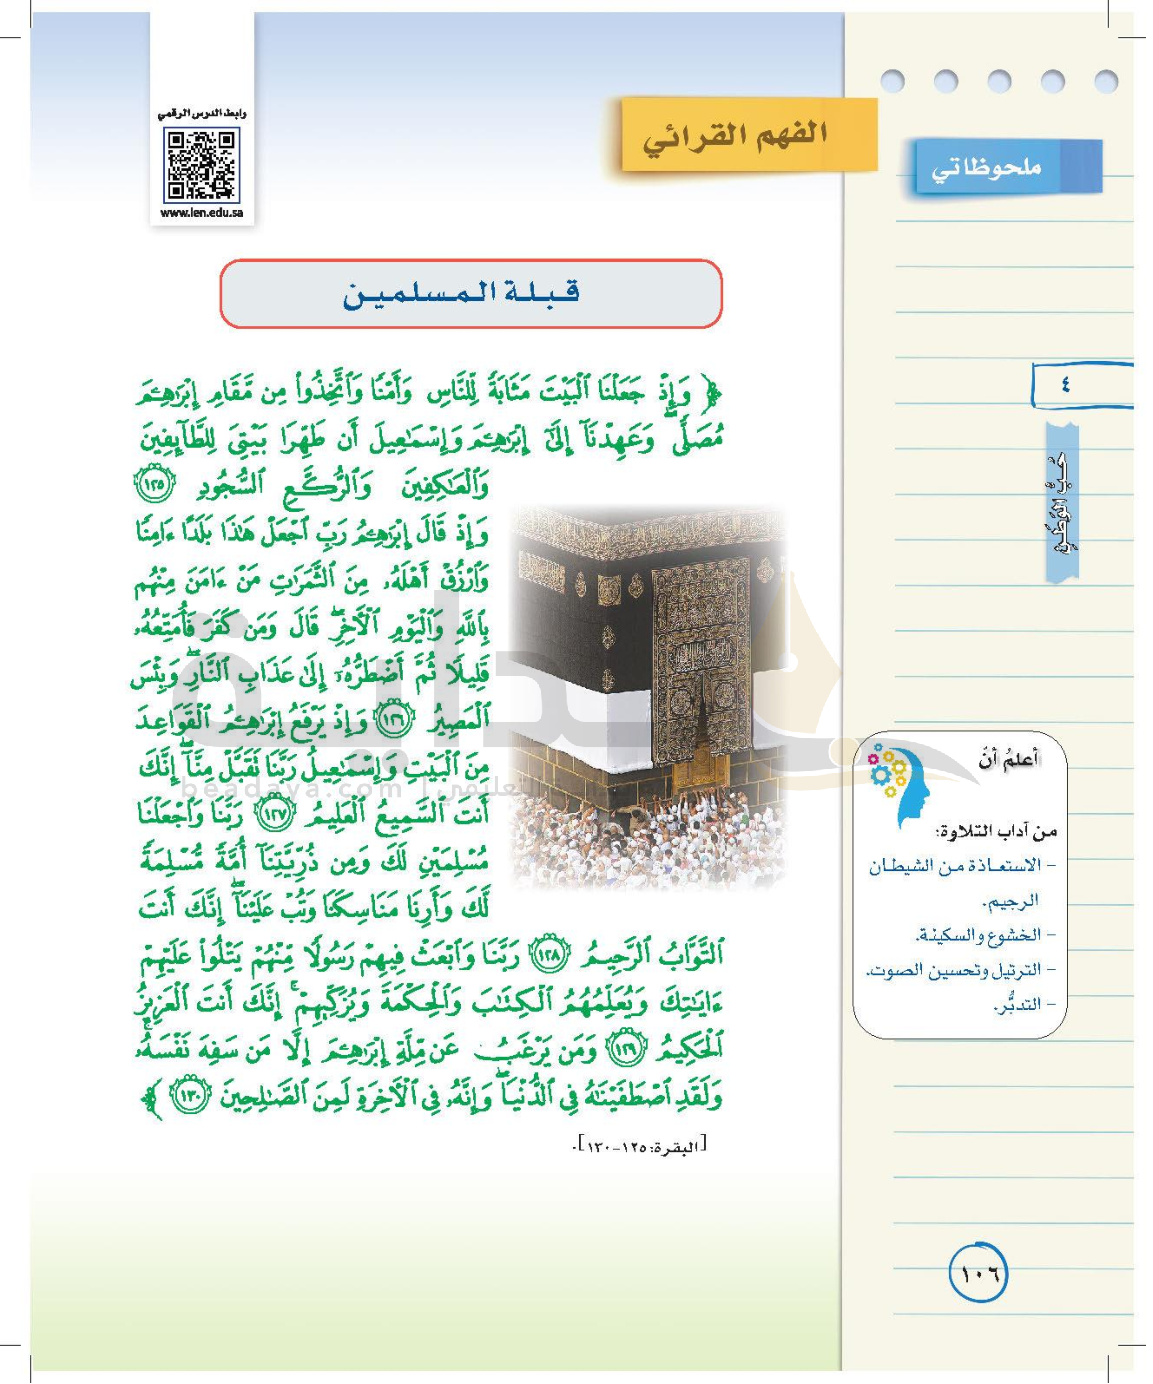 رابط الدرس الرقمي
www.ien.edu.sa
الفهم القرائي
ملحوظاتي
قبلة المسلمين
﴿ وَإِذْ جَعَلْنَا ٱلْبَيْتَ مَثَابَةً لِّلنَّاسِ وَأَمْنًا وَٱتَّخِذُوا۟ مِن مَّقَامِ إِبْرَٰهِـۧمَ
مُصَلًّى ۖ وَعَهِدْنَآ إِلَىٰٓ إِبْرَٰهِـۧمَ وَإِسْمَٰعِيلَ أَن طَهِّرَا بَيْتِىَ لِلطَّآئِفِينَ
وَٱلْعَٰكِفِينَ وَٱلرُّكَّعِ ٱلسُّجُودِ ١٢٥
وَإِذْ قَالَ إِبْرَٰهِـۧمُ رَبِّ ٱجْعَلْ هَٰذَا بَلَدًا ءَامِنًا
وَٱرْزُقْ أَهْلَهُۥ مِنَ ٱلثَّمَرَٰتِ مَنْ ءَامَنَ مِنْهُم
بِٱللَّهِ وَٱلْيَوْمِ ٱلْءَاخِرِ ۖ قَالَ وَمَن كَفَرَ فَأُمَتِّعُهُۥ
قَلِيلًا ثُمَّ أَضْطَرُّهُۥٓ إِلَىٰ عَذَابِ ٱلنَّارِ ۖ وَبِئْسَ
ٱلْمَصِيرُ ١٢٦ وَإِذْ يَرْفَعُ إِبْرَٰهِـۧمُ ٱلْقَوَاعِدَ
مِنَ ٱلْبَيْتِ وَإِسْمَٰعِيلُ رَبَّنَا تَقَبَّلْ مِنَّآ ۖ إِنَّكَ
أَنتَ ٱلسَّمِيعُ ٱلْعَلِيمُ ١٢٧ رَبَّنَا وَٱجْعَلْنَا
مُسْلِمَيْنِ لَكَ وَمِن ذُرِّيَّتِنَآ أُمَّةً مُّسْلِمَةً
لَّكَ وَأَرِنَا مَنَاسِكَنَا وَتُبْ عَلَيْنَآ ۖ إِنَّكَ أَنتَ
ٱلتَّوَّابُ ٱلرَّحِيمُ ١٢٨ رَبَّنَا وَٱبْعَثْ فِيهِمْ رَسُولًا مِّنْهُمْ يَتْلُوا۟ عَلَيْهِمْ
ءَايَٰتِكَ وَيُعَلِّمُهُمُ ٱلْكِتَٰبَ وَٱلْحِكْمَةَ وَيُزَكِّيهِمْ ۚ إِنَّكَ أَنتَ ٱلْعَزِيزُ
ٱلْحَكِيمُ ١٢٩ وَمَن يَرْغَبُ عَن مِّلَّةِ إِبْرَٰهِـۧمَ إِلَّا مَن سَفِهَ نَفْسَهُۥ ۚ
وَلَقَدِ ٱصْطَفَيْنَٰهُ فِى ٱلدُّنْيَا ۖ وَإِنَّهُۥ فِى ٱلْءَاخِرَةِ لَمِنَ ٱلصَّٰلِحِينَ ١٣٠ ﴾
[البقرة: ١٢٥-١٣٠].
٤
حُبُّ الوَطَنِ
أعلمُ أنّ
من آداب التلاوة:
- الاستعاذة من الشيطان
الرجيم.
- الخشوع والسكينة.
- الترتيل وتحسين الصوت.
- التدبُّر.
١٠٦
بداية
beadaya.com